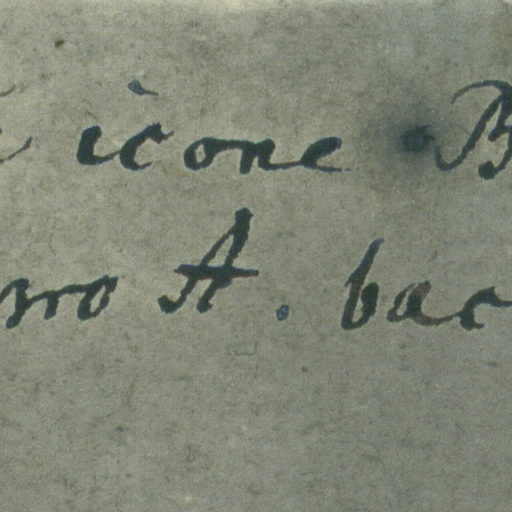 icone B
rro A. bac